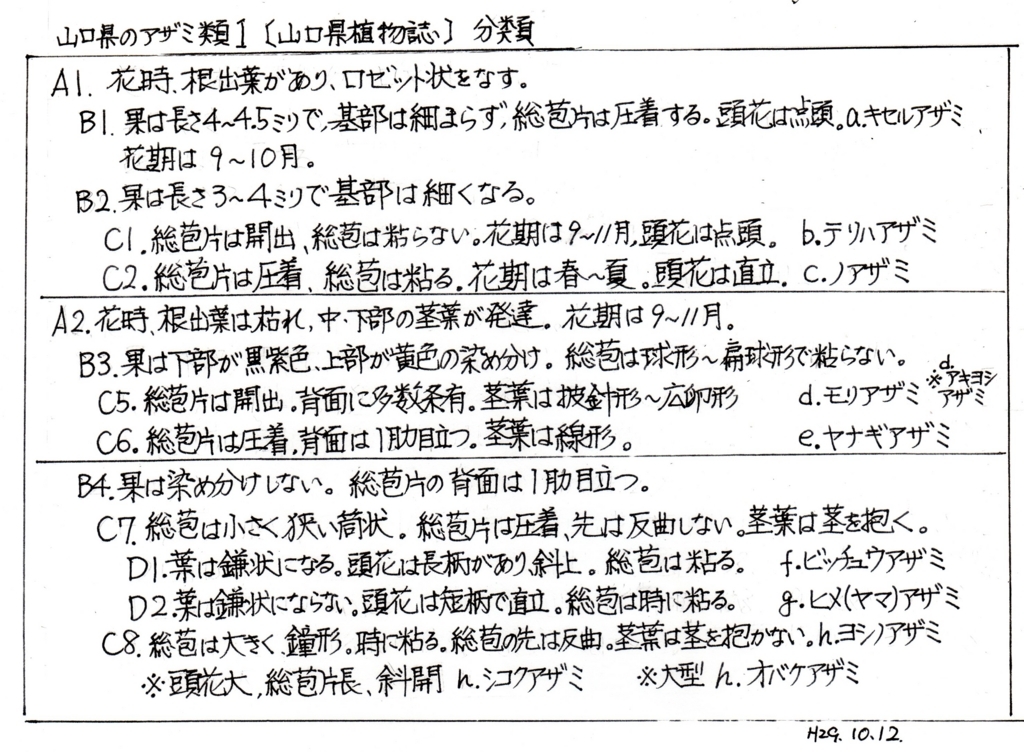 山口県のアザミ類I〔山口県植物誌〕分類
A1. 花時、根出葉があり、ロゼット状をなす。
B1. 果は長さ4~4.5ミリで、基部は細まらず、総苞片は圧着する。頭花は点頭。a.キセルアザミ
花期は9~10月。
B2.果は長さ3~4ミリで基部は細くなる。
C1.総苞片は開出、総苞は粘らない。花期は9~11月,頭花は点頭。 b.テリハアザミ
C2.総苞片は圧着、総苞は粘る。花期は春~夏。頭花は直立. c.ノアザミ
A2.花時、根出葉は枯れ,中・下部の茎葉が発達。花期は9~11月。
B3.果は下部が黒紫色、上部が黄色の染め分け。総苞は球形~扁球形で粘らない。
C5.総苞片は開出.背面に多数条有.茎葉は披針形~広卵形 d.モリアザミ ※d.アキヨシアザミ
C6.総苞片は圧着.背面は1肋目立つ。茎葉は線形。 e.ヤナギアザミ
B4.果は染め分けしない。総苞片の背面は1肋目立つ。
C7.総苞は小さく狭い筒状。総苞片は圧着、先は反曲しない。茎葉は茎を抱く。
D1.葉は鎌状になる。頭花は長柄があり,斜上。総苞は粘る。 f.ビッチュウアザミ
D2.葉は鎌状にならない。頭花は短柄で直立。総苞は時に粘る。 g.ヒメ(ヤマ)アザミ
C8.総苞は大きく、鐘形。時に粘る。総苞の先は反曲。茎葉は茎を抱かない。h.ヨシノアザミ
※頭花大,総苞片長、斜開 h.シコクアザミ ※大型 h.オバケアザミ
H29.10.12.